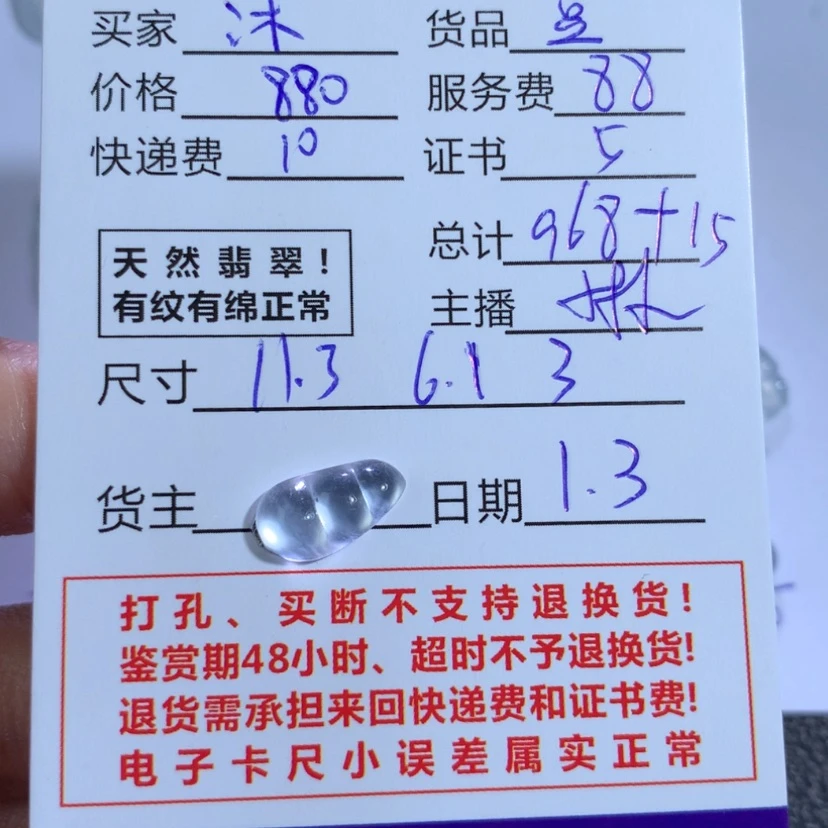 买家 沐 货品 豆
价格 880 服务费 88
快递费 10 证书 5
总计 968+15
天然翡翠！
有纹有绵正常
主播 林
尺寸 11.3 6.1 3
货主 日期 1.3
打孔、买断不支持退换货！
鉴赏期48小时、超时不予退换货!
退货需承担来回快递费和证书费!
电子卡尺小误差属实正常